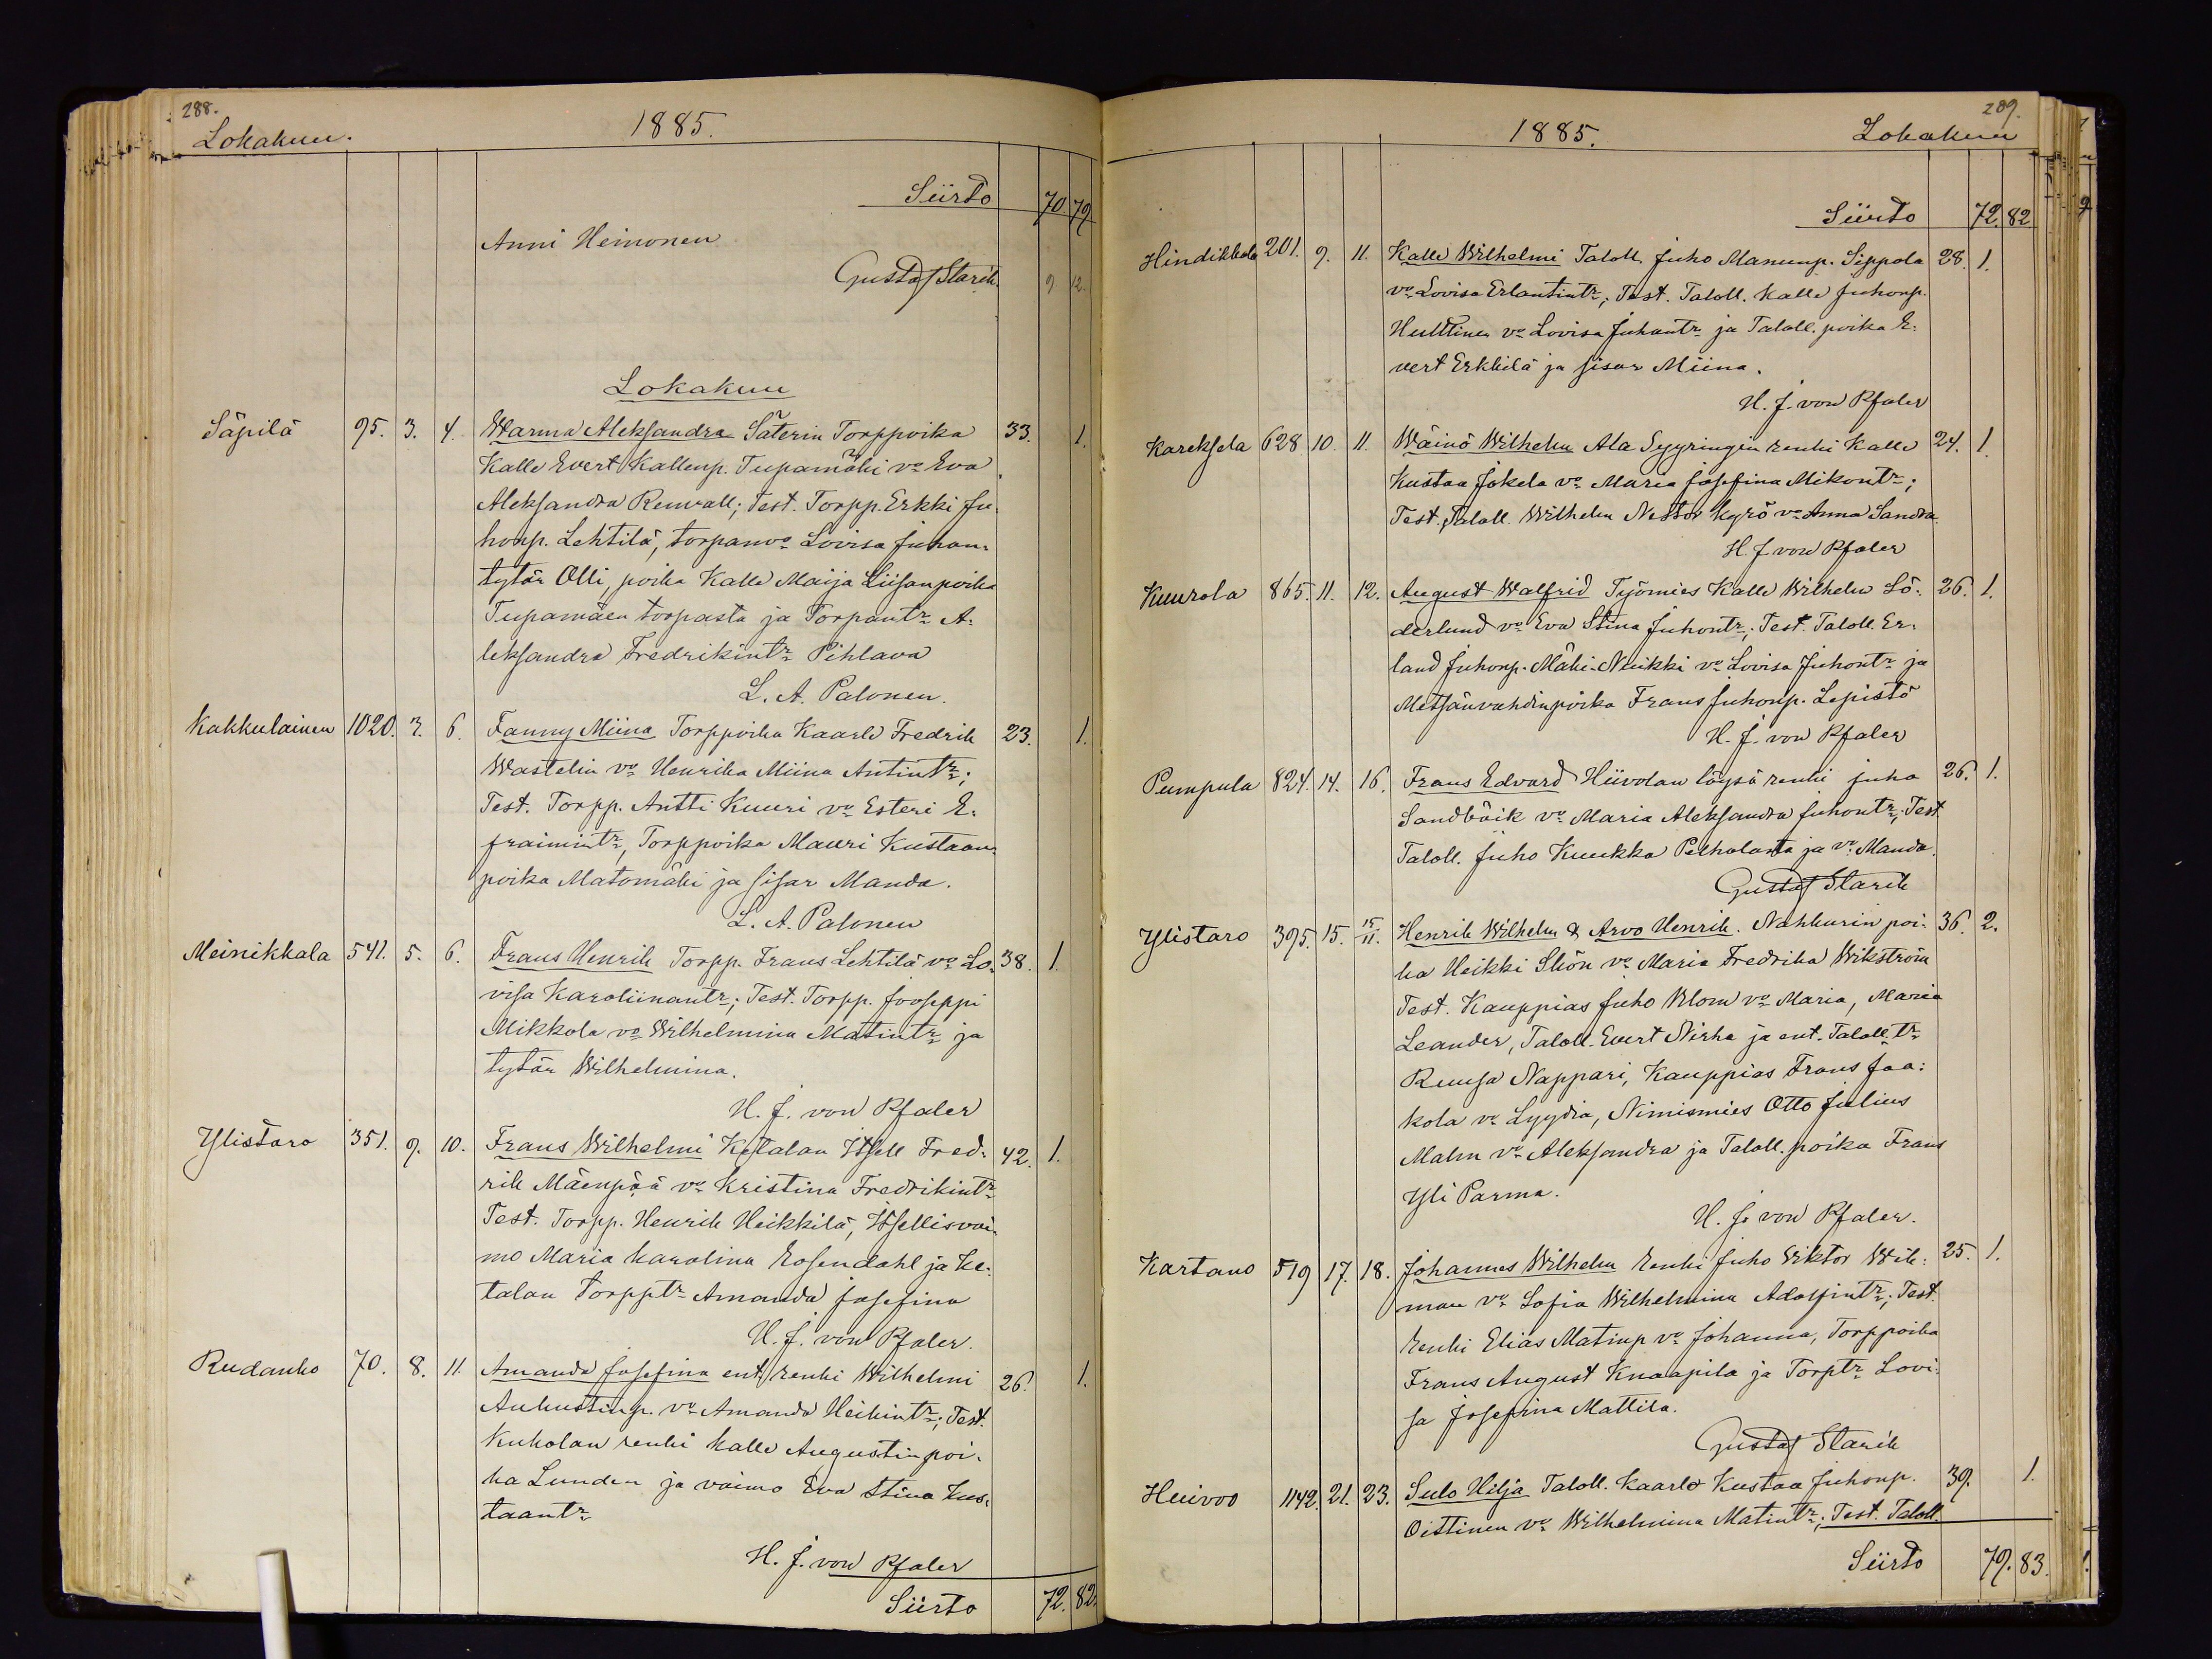 288.
Lokakuu.
1885.
Siirto 70 79
Anni Heinonen
Gustaf Starck. 9 12.
Lokakuu
Säpilä 95. 3. 4. Warma Aleksandra Säterin Torppoika 33. 1.
Kalle Evert Kallenp. Tupamäki vo Eva
Aleksandra Renvall; Test. Torpp. Erkki Ju-
honp. Lehtilä, torpanvo Lovisa Juhan-
tytär Olli, poika Kalle Maija Liisanpoika
Tupamäen torpasta ja Torpantr A-
leksandra Fredrikintr Pihlava
L. A. Palonen.
Kakkulainen 1020. 3. 6. Fanny Miina Torppoika Kaarle Fredrik 23. 1.
Wastelin vo Henrika Miina Antintr;
Test. Torpp. Antti Kuuri vo Esteri E-
fraimintr, Torppoika Mauri Kustaan-
poika Matomäki ja sisar Manda.
L. A. Palonen
Meinikkala 541. 5. 6. Frans Henrik Torpp. Frans Lehtilä vo Lo- 38. 1.
visa Karoliinantr; Test. Torpp. Jooseppi
Mikkola vo Wilhelmina Matintr ja
tytär Wilhelmina.
H. J. von Pfaler
Ylistaro 351. 9. 10. Frans Wilhelmi Ketalan Itsell Fred- 42. 1.
rik Mäenpää vo Kristina Fredrikintr
Test. Torpp. Henrik Heikkilä, Itsellisvai-
mo Maria Karolina Rosendahl ja Ke-
talan Torpptr Amanda Josefina
H. J. von Pfaler.
Rudanko 70. 8. 11. Amanda Josefina ent. renki Wilhelmi 26. 1.
Aukustinp. vo Amanda Heikintr; Test.
Kukolan renki Kalle Augustinpoi-
ka Lunden ja vaimo Eva Stina Kus-
taantr
H. J. von Pfaler
Siirto 72. 82.
289.
1885.
Lokakuu
Siirto 72. 82
Hindikkala 201. 9. 11. Kalle Wilhelmi Taloll. Juho Manunp. Sippola 28. 1.
vo Lovisa Erlantintr; Test. Taloll. Kalle Juhonp.
Hulttinen vo Lovisa Juhantr ja Taloll. poika E-
vert Erkkilä ja sisar Miina.
H. J. von Pfaler
Kareksela 628 10. 11. Wäinö Wilhelm Ala Syyringin renki Kalle 24. 1.
Kustaa Jokela vo Maria Josefina Mikontr;
Test. Taloll. Wilhelm Nestor Kyrö vo Anna Sandra
H. J. von Pfaler
Kuurola 865. 11. 12. August Walfrid Työmies Kalle Wilhelm Sö- 26. 1.
derlund vo Eva Stina Juhontr; Test. Taloll. Er-
land Juhonp. Mäki-Nuikki vo Lovisa Juhontr ja
Metsänvahdinpoika Frans Juhonp. Lepistö
H. J. von Pfaler
Pumpula 824. 14. 16. Frans Edvard Hiivolan löysä renki Juha 26. 1.
Sandbäck vo Maria Aleksandra Juhontr; Test
Taloll. Juho Kuukka Pelholasta ja vo Manda.
Gustaf Starck
Ylistaro 395. 15. 15/11. Henrik Wilhelm & Arvo Henrik. Nahkurin poi- 36. 2.
ka Heikki Skön vo Maria Fredrika Wikström
Test. Kauppias Juho Blom vo Maria, Maria
Leander, Taloll. Evert Nirha ja ent. Taloll. tr
Ruusa Nappari, Kauppias Frans Jaa-
kola vo Lyydia, Nimismies Otto Julius
Malm vo Aleksandra ja Taloll. poika Frans
Yli Parma.
H. J. von Pfaler.
Kartano 519 17. 18. Johannes Wilhelm Renki Juho Viktor Wik- 25. 1.
man vo Sofia Wilhelmina Adolfintr; Test.
Renki Elias Matinp vo Johanna, Torppoika
Frans August Knaapila ja Torptr Lovi-
sa Josefina Mattila.
Gustaf Starck
Huivoo 1142. 21. 23. Sulo Hilja Taloll. Kaarlo Kustaa Juhonp. 39. 1.
Oittinen vo Wilhelmina Matintr; Test. Taloll.
Siirto 79. 83.